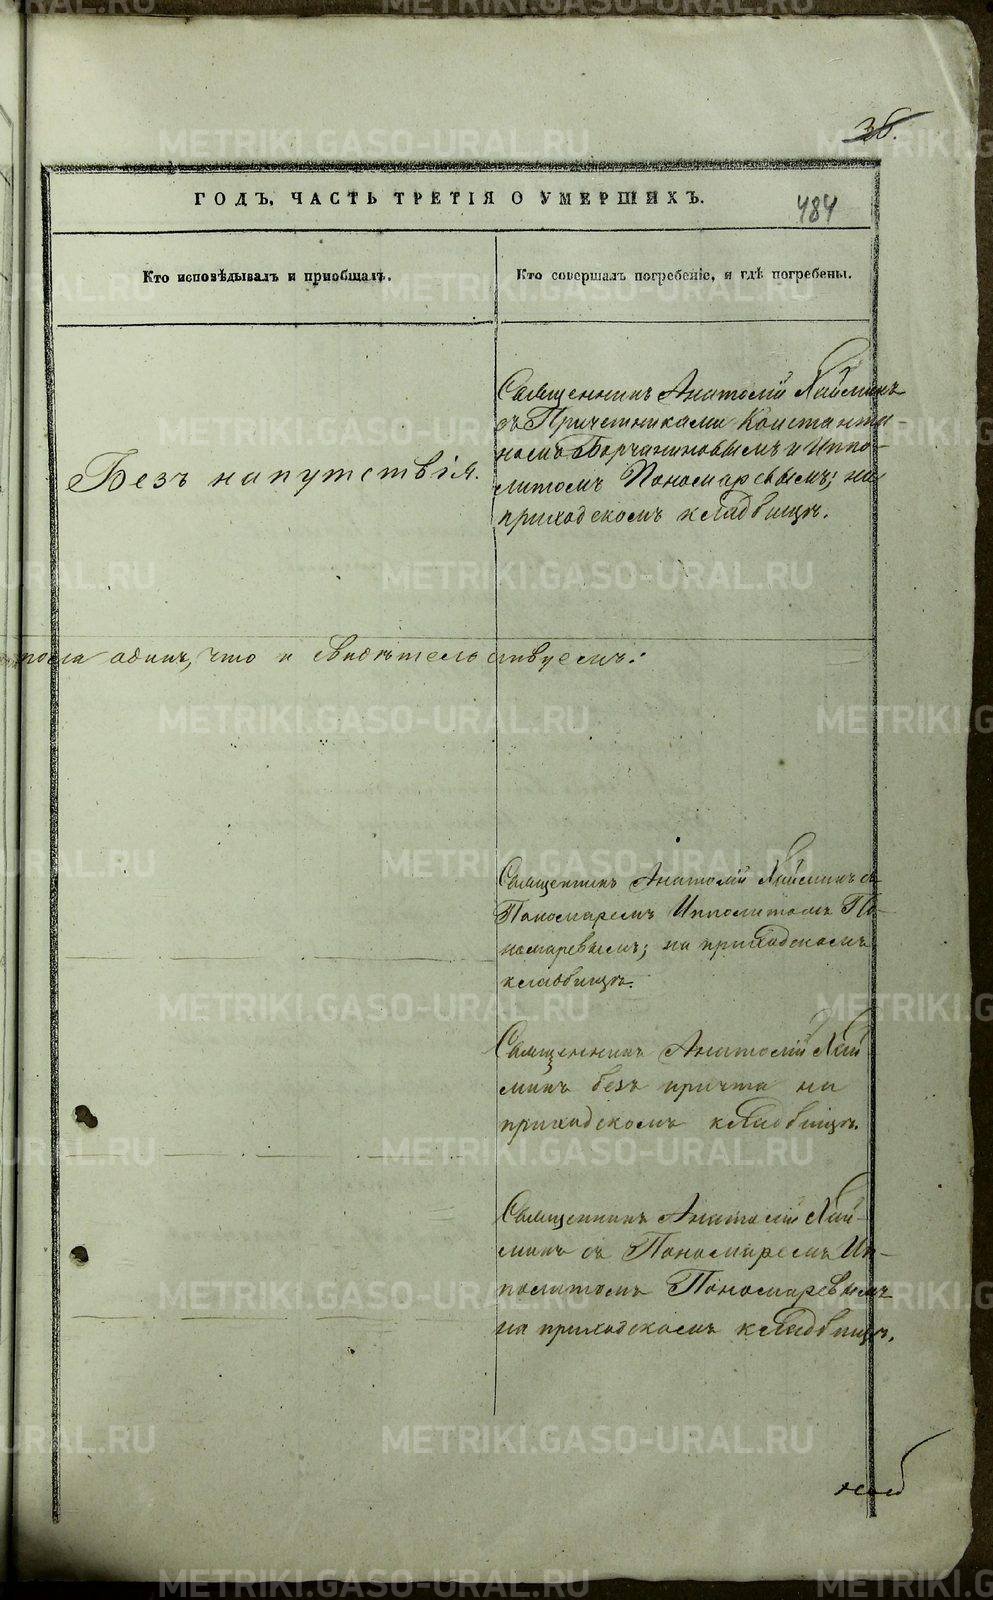 36.
ГОДЪ, ЧАСТЬ ТРЕТІЯ О УМЕРШИХЪ.
484
Кто исповѣдывалъ и приобщалъ.
Кто совершалъ погребеніе, и гдѣ погребены.
Без напутствія.
Священникъ Анатолій Хайминъ
съ Причетниками Константи
номъ Борчаниновымъ и Иппо-
литомъ Пономаревымъ; на
приходскомъ кладбищѣ.
одинъ, что и свидѣтельствуемъ:
Священникъ Анатолій Хайминъ съ
Пономаремъ Ипполитомъ По-
номаревымъ; на приходскомъ
кладбищѣ.
Священникъ Анатолій Хай
минъ безъ причта на
приходскомъ кладбищѣ.
Священникъ Анатолій Хай-
минъ съ Пономаремъ Ип-
политомъ Пономаревымъ
на приходскомъ кладбищѣ.
METRIKI.GASO-URAL.RU